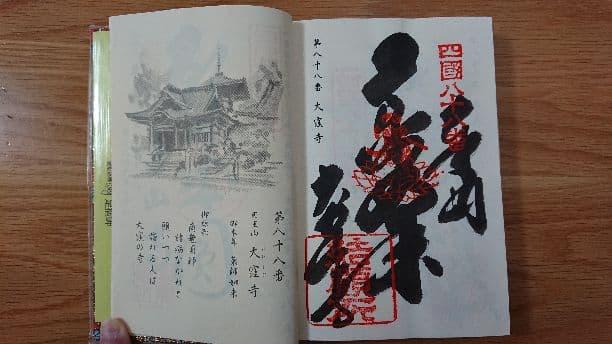 四國八十八番
奉納
大窪寺
第八十八番 大窪寺
第八十八番
医王山 大窪寺
本尊 薬師如来
御詠歌
南無薬師
諸病なかれと
願いつつ
詣れる人は
大窪の寺